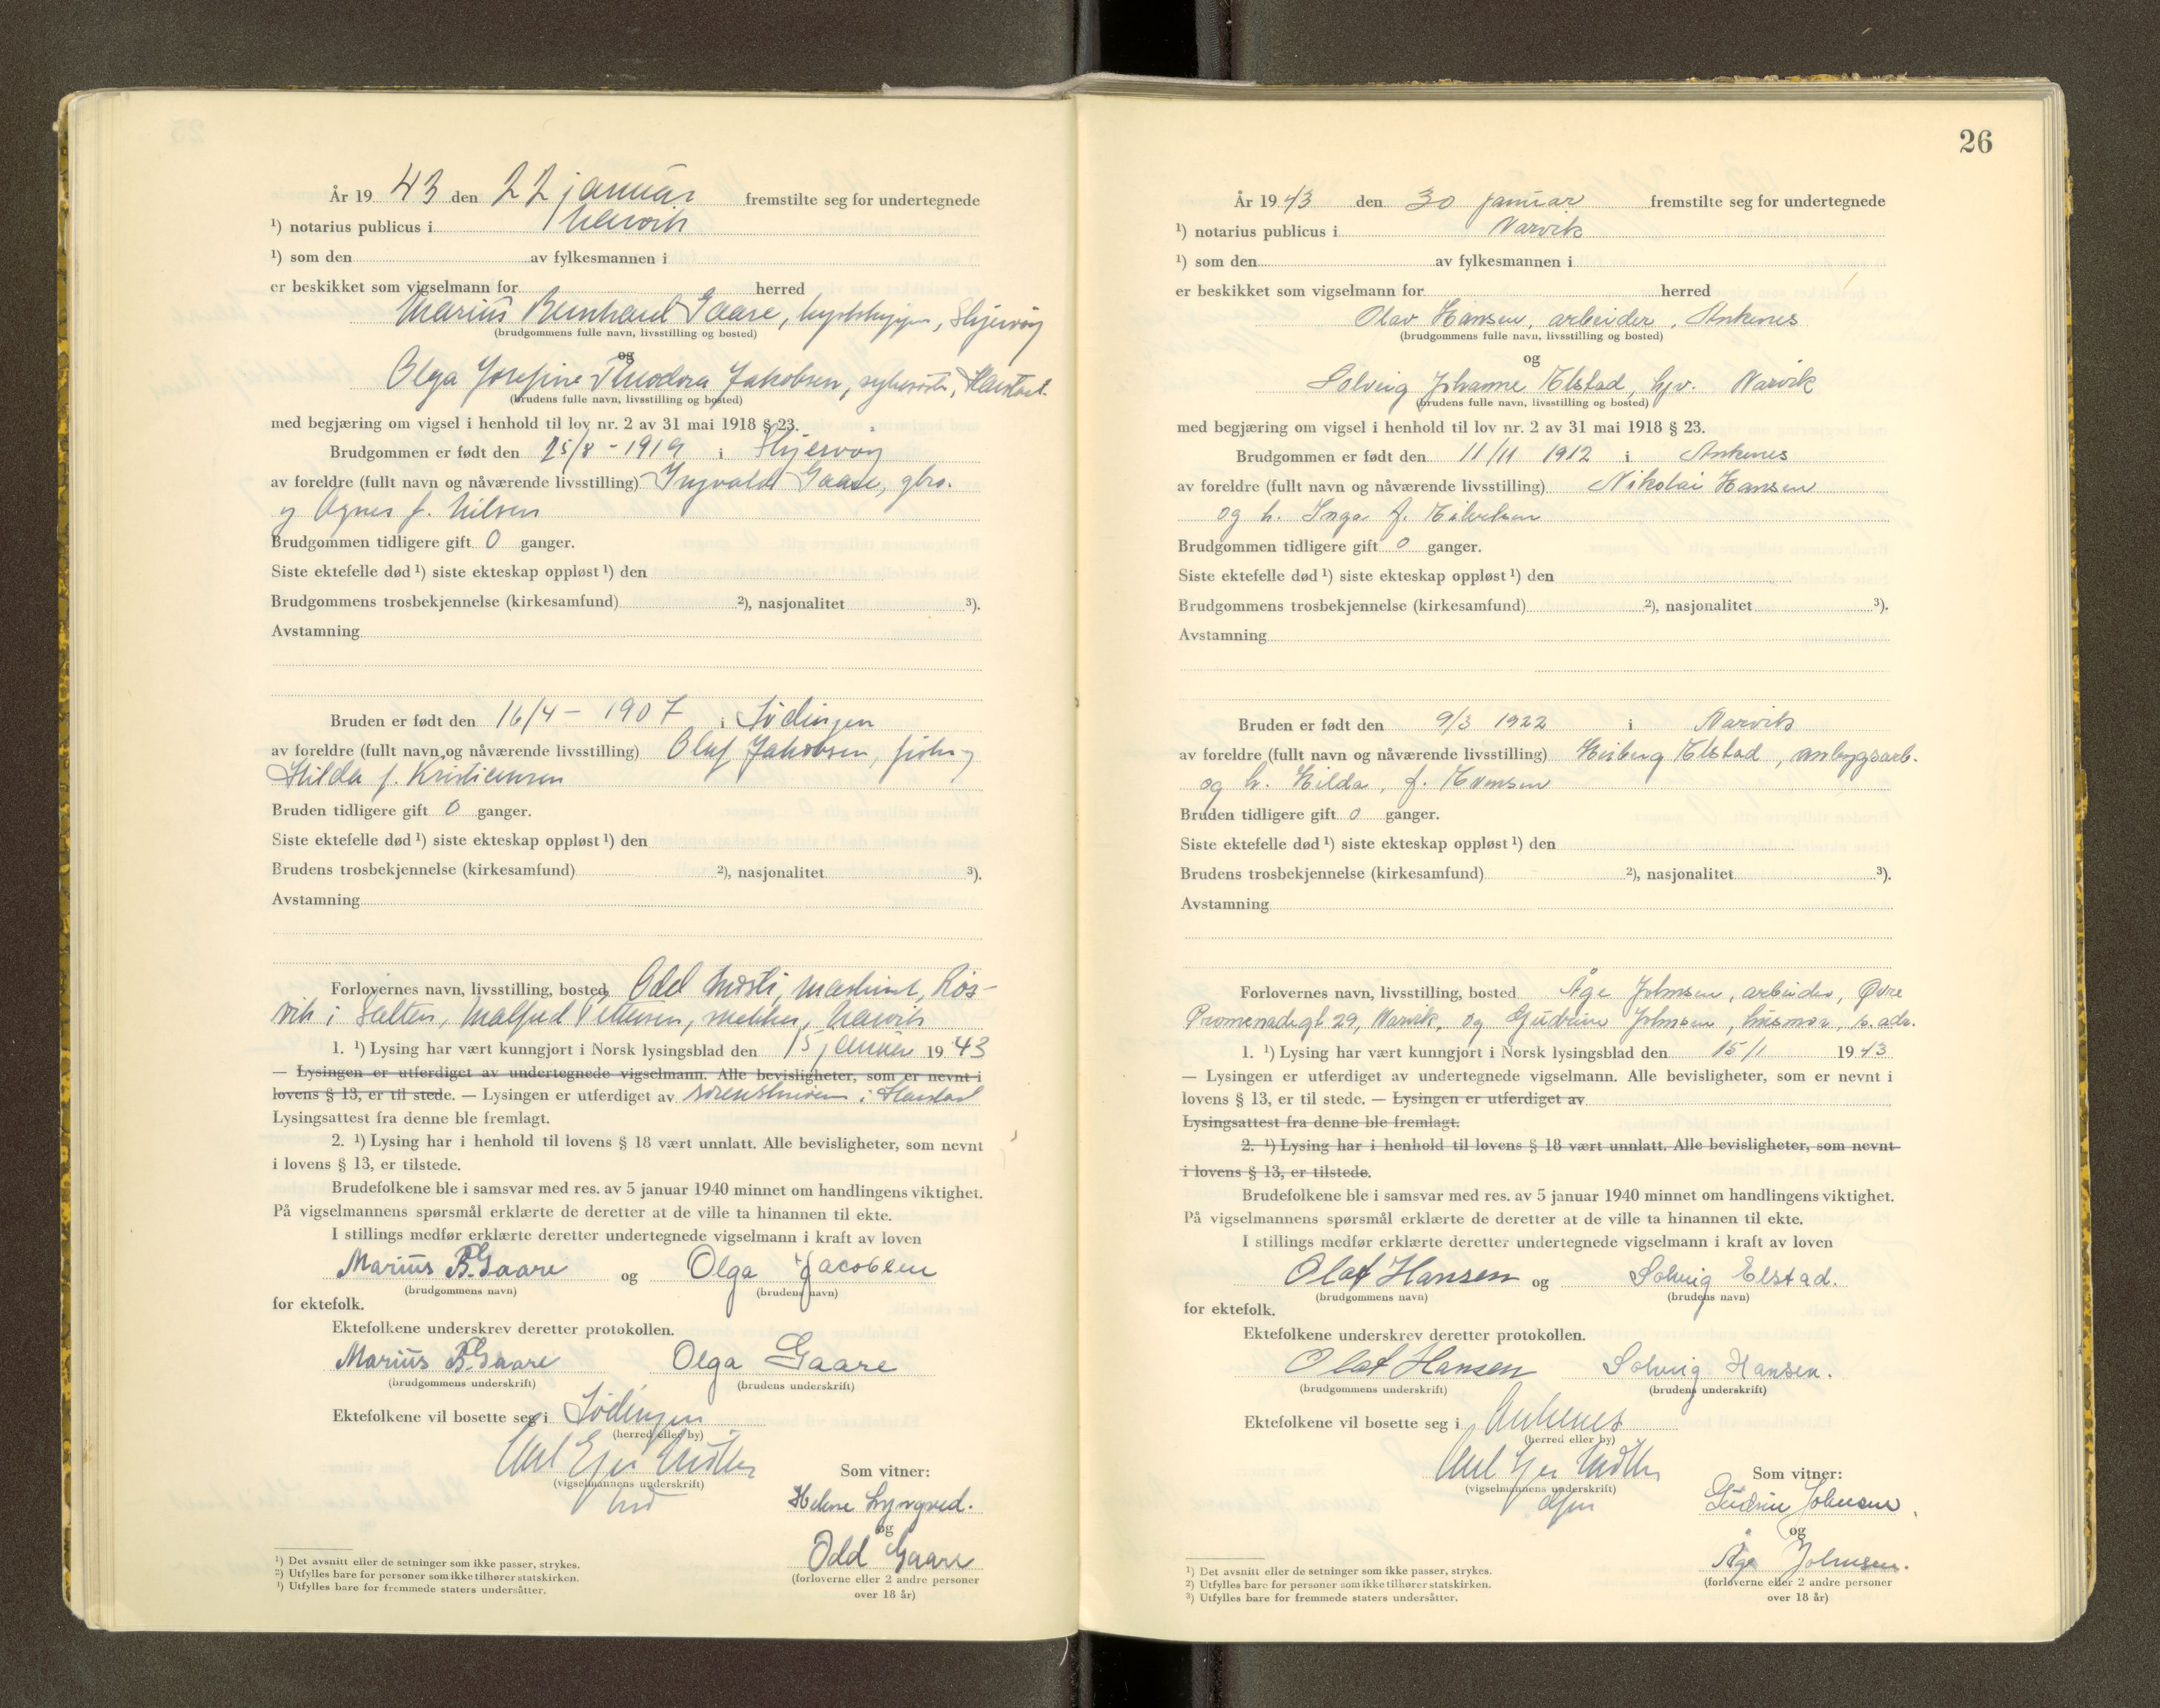 År 1943 den 22 januar fremstilte seg for undertegnede
¹) notarius publicus i Narvik
¹) som den av fylkesmannen i
er beskikket som vigselmann for herred
Marius Bernhard Gaare, Skjervøy
(brudgommens fulle navn, livsstilling og bosted)
og
Olga Josefine Theodora Jakobsen, Harstad.
(brudens fulle navn, livsstilling og bosted)
med begjæring om vigsel i henhold til lov nr. 2 av 31 mai 1918 § 23.
Brudgommen er født den 25/8 - 1919 i Skjervøy
av foreldre (fullt navn og nåværende livsstilling) Ingvald Gaare, gbr.
og Agnes f. Nilsen
Brudgommen tidligere gift 0 ganger.
Siste ektefelle død ¹) siste ekteskap oppløst ¹) den
Brudgommens trosbekjennelse (kirkesamfund) ²), nasjonalitet ³).
Avstamning
Bruden er født den 16/4 - 1907 i Lödingen
av foreldre (fullt navn og nåværende livsstilling) Oluf Jakobsen, fisker og
Hilda f. Kristiansen
Bruden tidligere gift 0 ganger.
Siste ektefelle død ¹) siste ekteskap oppløst ¹) den
Brudens trosbekjennelse (kirkesamfund) ²), nasjonalitet ³).
Avstamning
Forlovernes navn, livsstilling, bosted Odd maskinist, Røs-
vik i Salten, Malfred Pettersen, Narvik
1. ¹) Lysing har vært kunngjort i Norsk lysingsblad den 15 januar 1943
— Lysingen er utferdiget av undertegnede vigselmann. Alle bevisligheter, som er nevnt i
lovens § 13, er til stede. — Lysingen er utferdiget av sorenskriveren i Harstad
Lysingsattest fra denne ble fremlagt.
2. ¹) Lysing har i henhold til lovens § 18 vært unnlatt. Alle bevisligheter, som nevnt
i lovens § 13, er tilstede.
Brudefolkene ble i samsvar med res. av 5 januar 1940 minnet om handlingens viktighet.
På vigselmannens spørsmål erklærte de deretter at de ville ta hinannen til ekte.
I stillings medfør erklærte deretter undertegnede vigselmann i kraft av loven
Marius B. Gaare og Olga Jacobsen
(brudgommens navn) (brudens navn)
for ektefolk.
Ektefolkene underskrev deretter protokollen.
Marius B. Gaare Olga Gaare
(brudgommens underskrift) (brudens underskrift)
Ektefolkene vil bosette seg i Lödingen
(herred eller by)
(vigselmannens underskrift)
Som vitner:
Helene Lyngved.
og
Odd Gaare
(forloverne eller 2 andre personer
over 18 år)
¹) Det avsnitt eller de setninger som ikke passer, strykes.
²) Utfylles bare for personer som ikke tilhører statskirken.
³) Utfylles bare for fremmede staters undersåtter.
26
År 1943 den 30 januar fremstilte seg for undertegnede
¹) notarius publicus i Narvik
¹) som den av fylkesmannen i
er beskikket som vigselmann for herred
Olav Hansen, arbeider, Ankenes
(brudgommens fulle navn, livsstilling og bosted)
og
Solveig Johanne Elstad, hjv. Narvik
(brudens fulle navn, livsstilling og bosted)
med begjæring om vigsel i henhold til lov nr. 2 av 31 mai 1918 § 23.
Brudgommen er født den 11/11 1912 i Ankenes
av foreldre (fullt navn og nåværende livsstilling) Nikolai Hansen
og h. Inga f.
Brudgommen tidligere gift 0 ganger.
Siste ektefelle død ¹) siste ekteskap oppløst ¹) den
Brudgommens trosbekjennelse (kirkesamfund) ²), nasjonalitet ³).
Avstamning
Bruden er født den 9/3 1922 i Narvik
av foreldre (fullt navn og nåværende livsstilling) Elstad, anlegsarb.
og h. Hilda, f.
Bruden tidligere gift 0 ganger.
Siste ektefelle død ¹) siste ekteskap oppløst ¹) den
Brudens trosbekjennelse (kirkesamfund) ²), nasjonalitet ³).
Avstamning
Forlovernes navn, livsstilling, bosted Åge Johnsen, arbeider, Øvre
Promenadegt 29, Narvik, og Gudrun Johnsen, husmor, s. adr.
1. ¹) Lysing har vært kunngjort i Norsk lysingsblad den 15/1 1943
— Lysingen er utferdiget av undertegnede vigselmann. Alle bevisligheter, som er nevnt i
lovens § 13, er til stede. — Lysingen er utferdiget av
Lysingsattest fra denne ble fremlagt.
2. ¹) Lysing har i henhold til lovens § 18 vært unnlatt. Alle bevisligheter, som nevnt
i lovens § 13, er tilstede.
Brudefolkene ble i samsvar med res. av 5 januar 1940 minnet om handlingens viktighet.
På vigselmannens spørsmål erklærte de deretter at de ville ta hinannen til ekte.
I stillings medfør erklærte deretter undertegnede vigselmann i kraft av loven
Olaf Hansen og Solveig Elstad.
(brudgommens navn) (brudens navn)
for ektefolk.
Ektefolkene underskrev deretter protokollen.
Olaf Hansen Solveig Hansen.
(brudgommens underskrift) (brudens underskrift)
Ektefolkene vil bosette seg i Ankenes
(herred eller by)
(vigselmannens underskrift)
Som vitner:
Gudrun Johnsen
og
Åge Johnsen.
(forloverne eller 2 andre personer
over 18 år)
¹) Det avsnitt eller de setninger som ikke passer, strykes.
²) Utfylles bare for personer som ikke tilhører statskirken.
³) Utfylles bare for fremmede staters undersåtter.